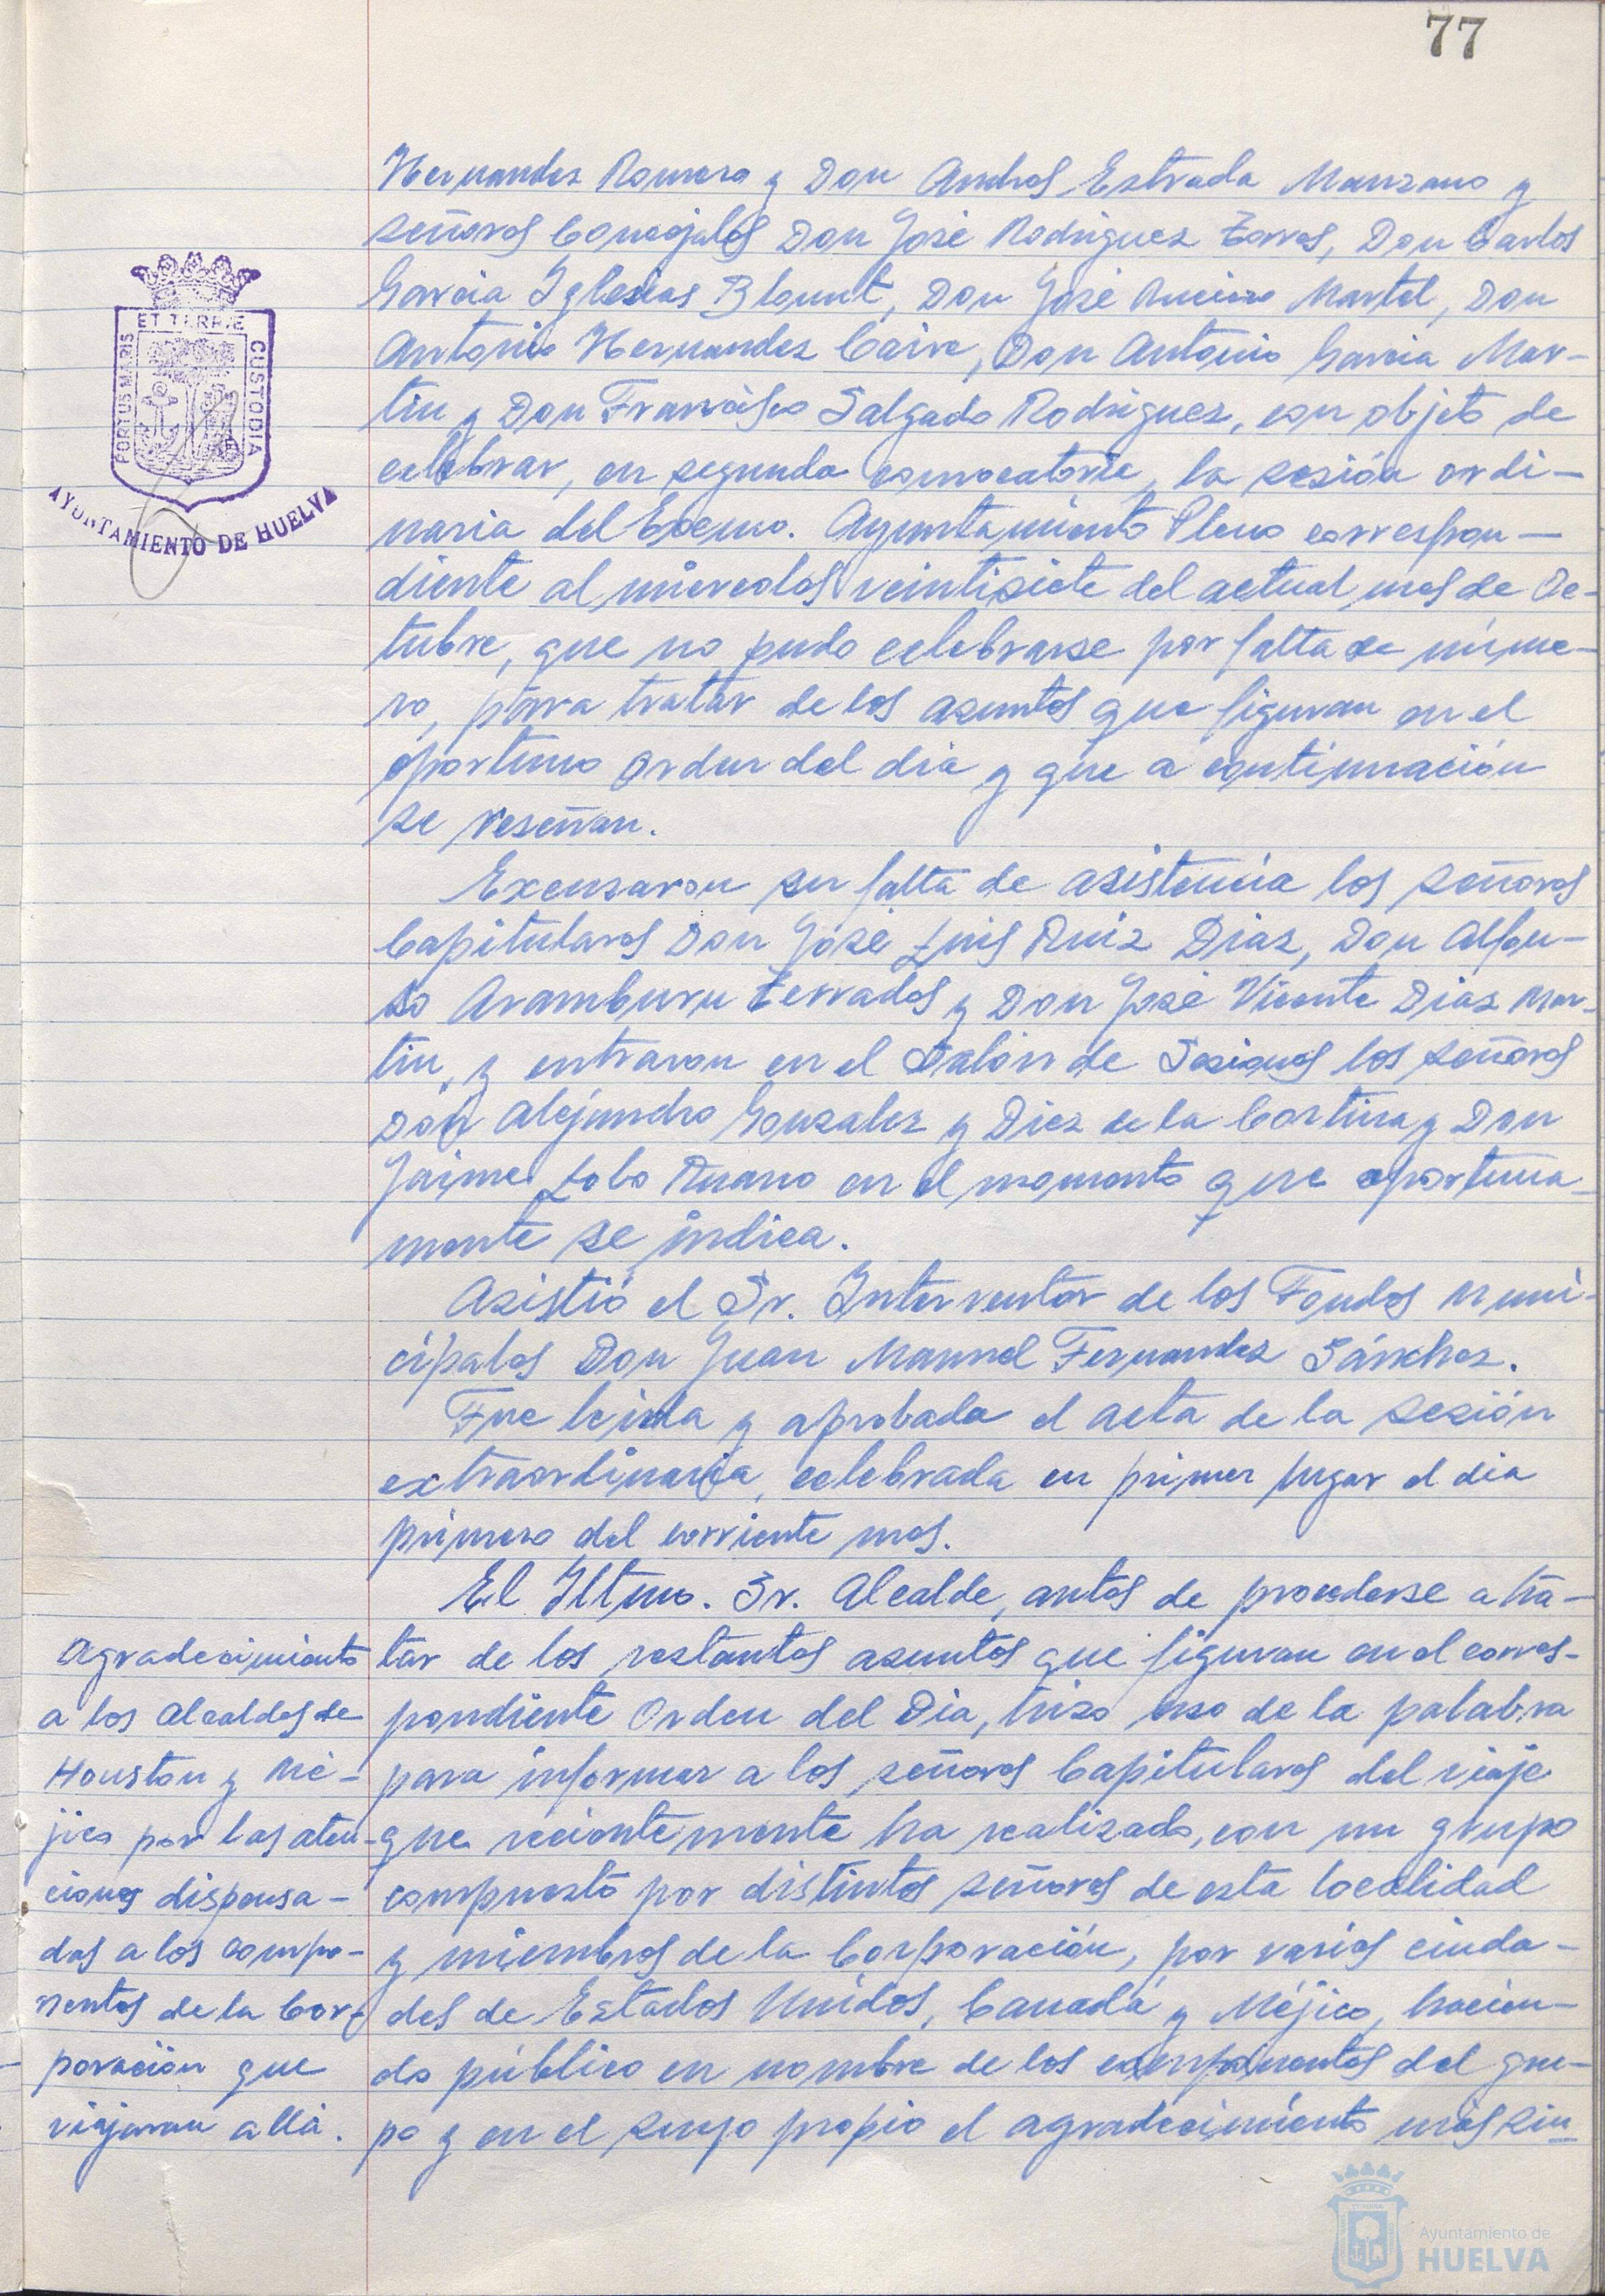 77
Hernandez Romero y Don Andres Estrada Manzano y
señores Concejales Don José Rodriguez Torres, Don Carlos
Garcia Iglesias Blount, Don José Martel, Don
Antonio Hernandez Caire, Don Antonio Garcia Mar-
tin y Don Francisco Salgado Rodriguez, con objeto de
celebrar, en segunda convocatoria, la sesión ordi-
naria del Excmo. Ayuntamiento Pleno correspon-
diente al miercoles veintisiete del actual mes de Oc-
tubre, que no pudo celebrarse por falta de núme-
ro, para tratar de los asuntos que figuran en el
oportuno Orden del dia y que a continuación
se reseñan.
Excusaron su falta de asistencia los señores
Capitulares Don José Luis Ruiz Diaz, Don Alfon-
so Aramburu Terrades y Don José Vicente Diaz Mar-
tin, y entraron en el Salón de Sesiones los señores
Don Alejandro Gonzalez y Diez de la Cortina y Don
Jaime Lobo Ruano en el momento que oportuna-
mente se indica.
Asistió el Sr. Interventor de los Fondos Muni-
cipales Don Juan Manuel Fernandez Sánchez.
Fue leida y aprobada el acta de la sesión
extraordinaria, celebrada en primer lugar el dia
primero del corriente mes.
El Iltmo. Sr. Alcalde, antes de procederse a tra-
tar de los restantes asuntos que figuran en el corres-
pondiente Orden del Dia, hizo uso de la palabra
para informar a los señores Capitulares del viaje
que recientemente ha realizado, con un grupo
compuesto por distintos señores de esta localidad
y miembros de la Corporación, por varias ciuda-
des de Estados Unidos, Canadá y Méjico, hacien-
do público en nombre de los componentes del gru-
po y en el suyo propio el agradecimiento mas sin-
Agradecimiento
a los Alcaldes de
Houston y Mé-
jico por las aten-
ciones dispensa-
das a los compo-
nentes de la Cor-
poración que
viajaron allá.
PORTUS MARIS
ET TERRÆ
CUSTODIA
AYUNTAMIENTO DE HUELVA
Ayuntamiento de
HUELVA